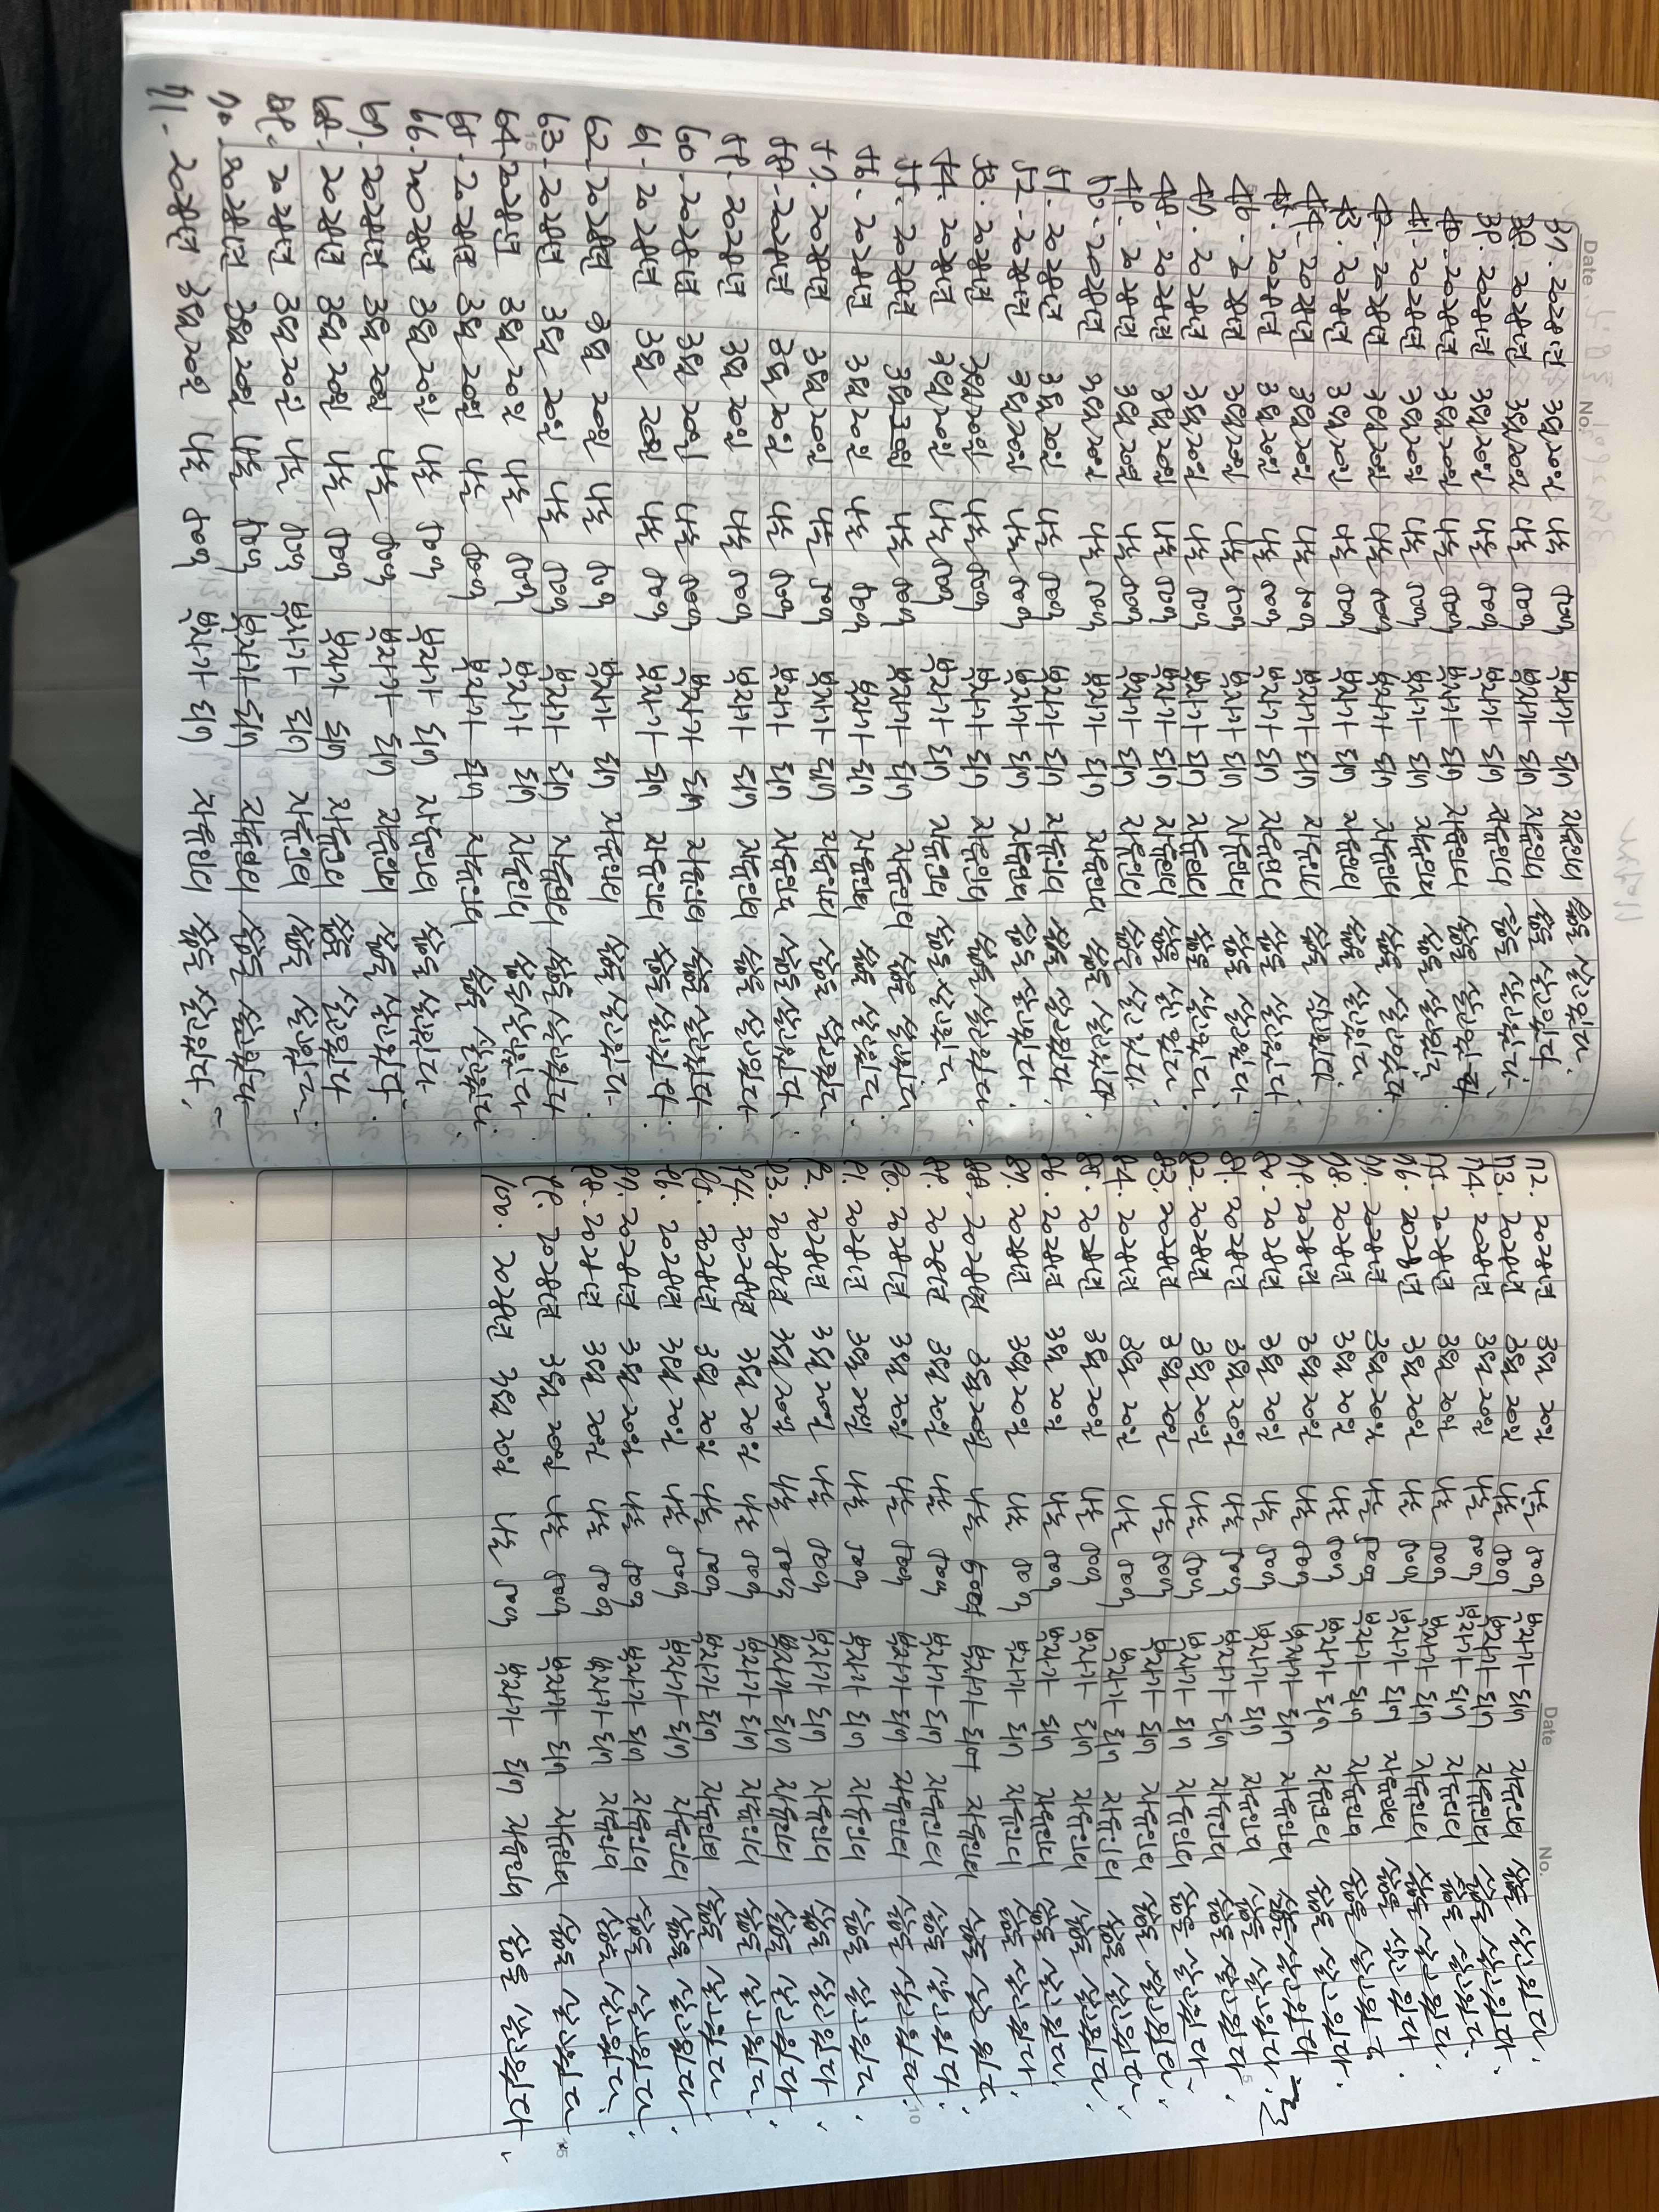 Date No.
37. 2028년 3월 20일 나는 500억 부자가 되어 자유인의 삶을 살고있다.
38. 2028년 3월 20일 나는 500억 부자가 되어 자유인의 삶을 살고있다.
39. 2028년 3월 20일 나는 500억 부자가 되어 자유인의 삶을 살고있다.
40. 2028년 3월 20일 나는 500억 부자가 되어 자유인의 삶을 살고있다.
41. 2028년 3월 20일 나는 500억 부자가 되어 자유인의 삶을 살고있다.
42. 2028년 3월 20일 나는 500억 부자가 되어 자유인의 삶을 살고있다.
43. 2028년 3월 20일 나는 500억 부자가 되어 자유인의 삶을 살고있다.
44. 2028년 3월 20일 나는 500억 부자가 되어 자유인의 삶을 살고있다.
45. 2028년 3월 20일 나는 500억 부자가 되어 자유인의 삶을 살고있다.
46. 2028년 3월 20일 나는 500억 부자가 되어 자유인의 삶을 살고있다.
47. 2028년 3월 20일 나는 500억 부자가 되어 자유인의 삶을 살고있다.
48. 2028년 3월 20일 나는 500억 부자가 되어 자유인의 삶을 살고있다.
49. 2028년 3월 20일 나는 500억 부자가 되어 자유인의 삶을 살고있다.
50. 2028년 3월 20일 나는 500억 부자가 되어 자유인의 삶을 살고있다.
51. 2028년 3월 20일 나는 500억 부자가 되어 자유인의 삶을 살고있다.
52. 2028년 3월 20일 나는 500억 부자가 되어 자유인의 삶을 살고있다.
53. 2028년 3월 20일 나는 500억 부자가 되어 자유인의 삶을 살고있다.
54. 2028년 3월 20일 나는 500억 부자가 되어 자유인의 삶을 살고있다.
55. 2028년 3월 20일 나는 500억 부자가 되어 자유인의 삶을 살고있다.
56. 2028년 3월 20일 나는 500억 부자가 되어 자유인의 삶을 살고있다.
57. 2028년 3월 20일 나는 500억 부자가 되어 자유인의 삶을 살고있다.
58. 2028년 3월 20일 나는 500억 부자가 되어 자유인의 삶을 살고있다.
59. 2028년 3월 20일 나는 500억 부자가 되어 자유인의 삶을 살고있다.
60. 2028년 3월 20일 나는 500억 부자가 되어 자유인의 삶을 살고있다.
61. 2028년 3월 20일 나는 500억 부자가 되어 자유인의 삶을 살고있다.
62. 2028년 3월 20일 나는 500억 부자가 되어 자유인의 삶을 살고있다.
63. 2028년 3월 20일 나는 500억 부자가 되어 자유인의 삶을 살고있다.
64. 2028년 3월 20일 나는 500억 부자가 되어 자유인의 삶을 살고있다.
65. 2028년 3월 20일 나는 500억 부자가 되어 자유인의 삶을 살고있다.
66. 2028년 3월 20일 나는 500억 부자가 되어 자유인의 삶을 살고있다.
67. 2028년 3월 20일 나는 500억 부자가 되어 자유인의 삶을 살고있다.
68. 2028년 3월 20일 나는 500억 부자가 되어 자유인의 삶을 살고있다.
69. 2028년 3월 20일 나는 500억 부자가 되어 자유인의 삶을 살고있다.
70. 2028년 3월 20일 나는 500억 부자가 되어 자유인의 삶을 살고있다.
71. 2028년 3월 20일 나는 500억 부자가 되어 자유인의 삶을 살고있다.
Date No.
72. 2028년 3월 20일 나는 500억 부자가 되어 자유인의 삶을 살고있다.
73. 2028년 3월 20일 나는 500억 부자가 되어 자유인의 삶을 살고있다.
74. 2028년 3월 20일 나는 500억 부자가 되어 자유인의 삶을 살고있다.
75. 2028년 3월 20일 나는 500억 부자가 되어 자유인의 삶을 살고있다.
76. 2028년 3월 20일 나는 500억 부자가 되어 자유인의 삶을 살고있다.
77. 2028년 3월 20일 나는 500억 부자가 되어 자유인의 삶을 살고있다.
78. 2028년 3월 20일 나는 500억 부자가 되어 자유인의 삶을 살고있다.
79. 2028년 3월 20일 나는 500억 부자가 되어 자유인의 삶을 살고있다.
80. 2028년 3월 20일 나는 500억 부자가 되어 자유인의 삶을 살고있다.
81. 2028년 3월 20일 나는 500억 부자가 되어 자유인의 삶을 살고있다.
82. 2028년 3월 20일 나는 500억 부자가 되어 자유인의 삶을 살고있다.
83. 2028년 3월 20일 나는 500억 부자가 되어 자유인의 삶을 살고있다.
84. 2028년 3월 20일 나는 500억 부자가 되어 자유인의 삶을 살고있다.
85. 2028년 3월 20일 나는 500억 부자가 되어 자유인의 삶을 살고있다.
86. 2028년 3월 20일 나는 500억 부자가 되어 자유인의 삶을 살고있다.
87. 2028년 3월 20일 나는 500억 부자가 되어 자유인의 삶을 살고있다.
88. 2028년 3월 20일 나는 500억 부자가 되어 자유인의 삶을 살고있다.
89. 2028년 3월 20일 나는 500억 부자가 되어 자유인의 삶을 살고있다.
90. 2028년 3월 20일 나는 500억 부자가 되어 자유인의 삶을 살고있다.
91. 2028년 3월 20일 나는 500억 부자가 되어 자유인의 삶을 살고있다.
92. 2028년 3월 20일 나는 500억 부자가 되어 자유인의 삶을 살고있다.
93. 2028년 3월 20일 나는 500억 부자가 되어 자유인의 삶을 살고있다.
94. 2028년 3월 20일 나는 500억 부자가 되어 자유인의 삶을 살고있다.
95. 2028년 3월 20일 나는 500억 부자가 되어 자유인의 삶을 살고있다.
96. 2028년 3월 20일 나는 500억 부자가 되어 자유인의 삶을 살고있다.
97. 2028년 3월 20일 나는 500억 부자가 되어 자유인의 삶을 살고있다.
98. 2028년 3월 20일 나는 500억 부자가 되어 자유인의 삶을 살고있다.
99. 2028년 3월 20일 나는 500억 부자가 되어 자유인의 삶을 살고있다.
100. 2028년 3월 20일 나는 500억 부자가 되어 자유인의 삶을 살고있다.